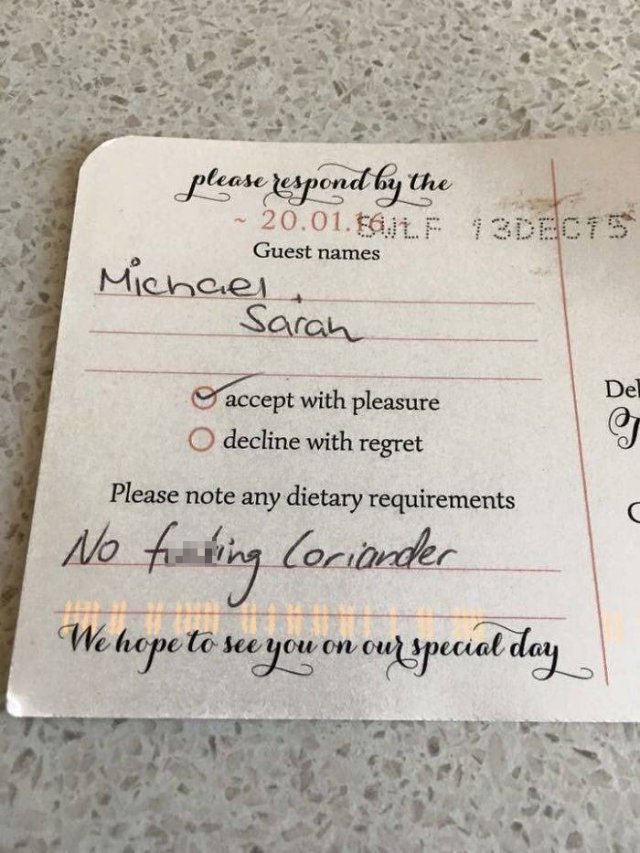 please respond by the
~ 20.01.16
13DEC15
Guest names
Michael
Sarah
accept with pleasure
decline with regret
Please note any dietary requirements
No Coriander
We hope to see you on our special day
Del